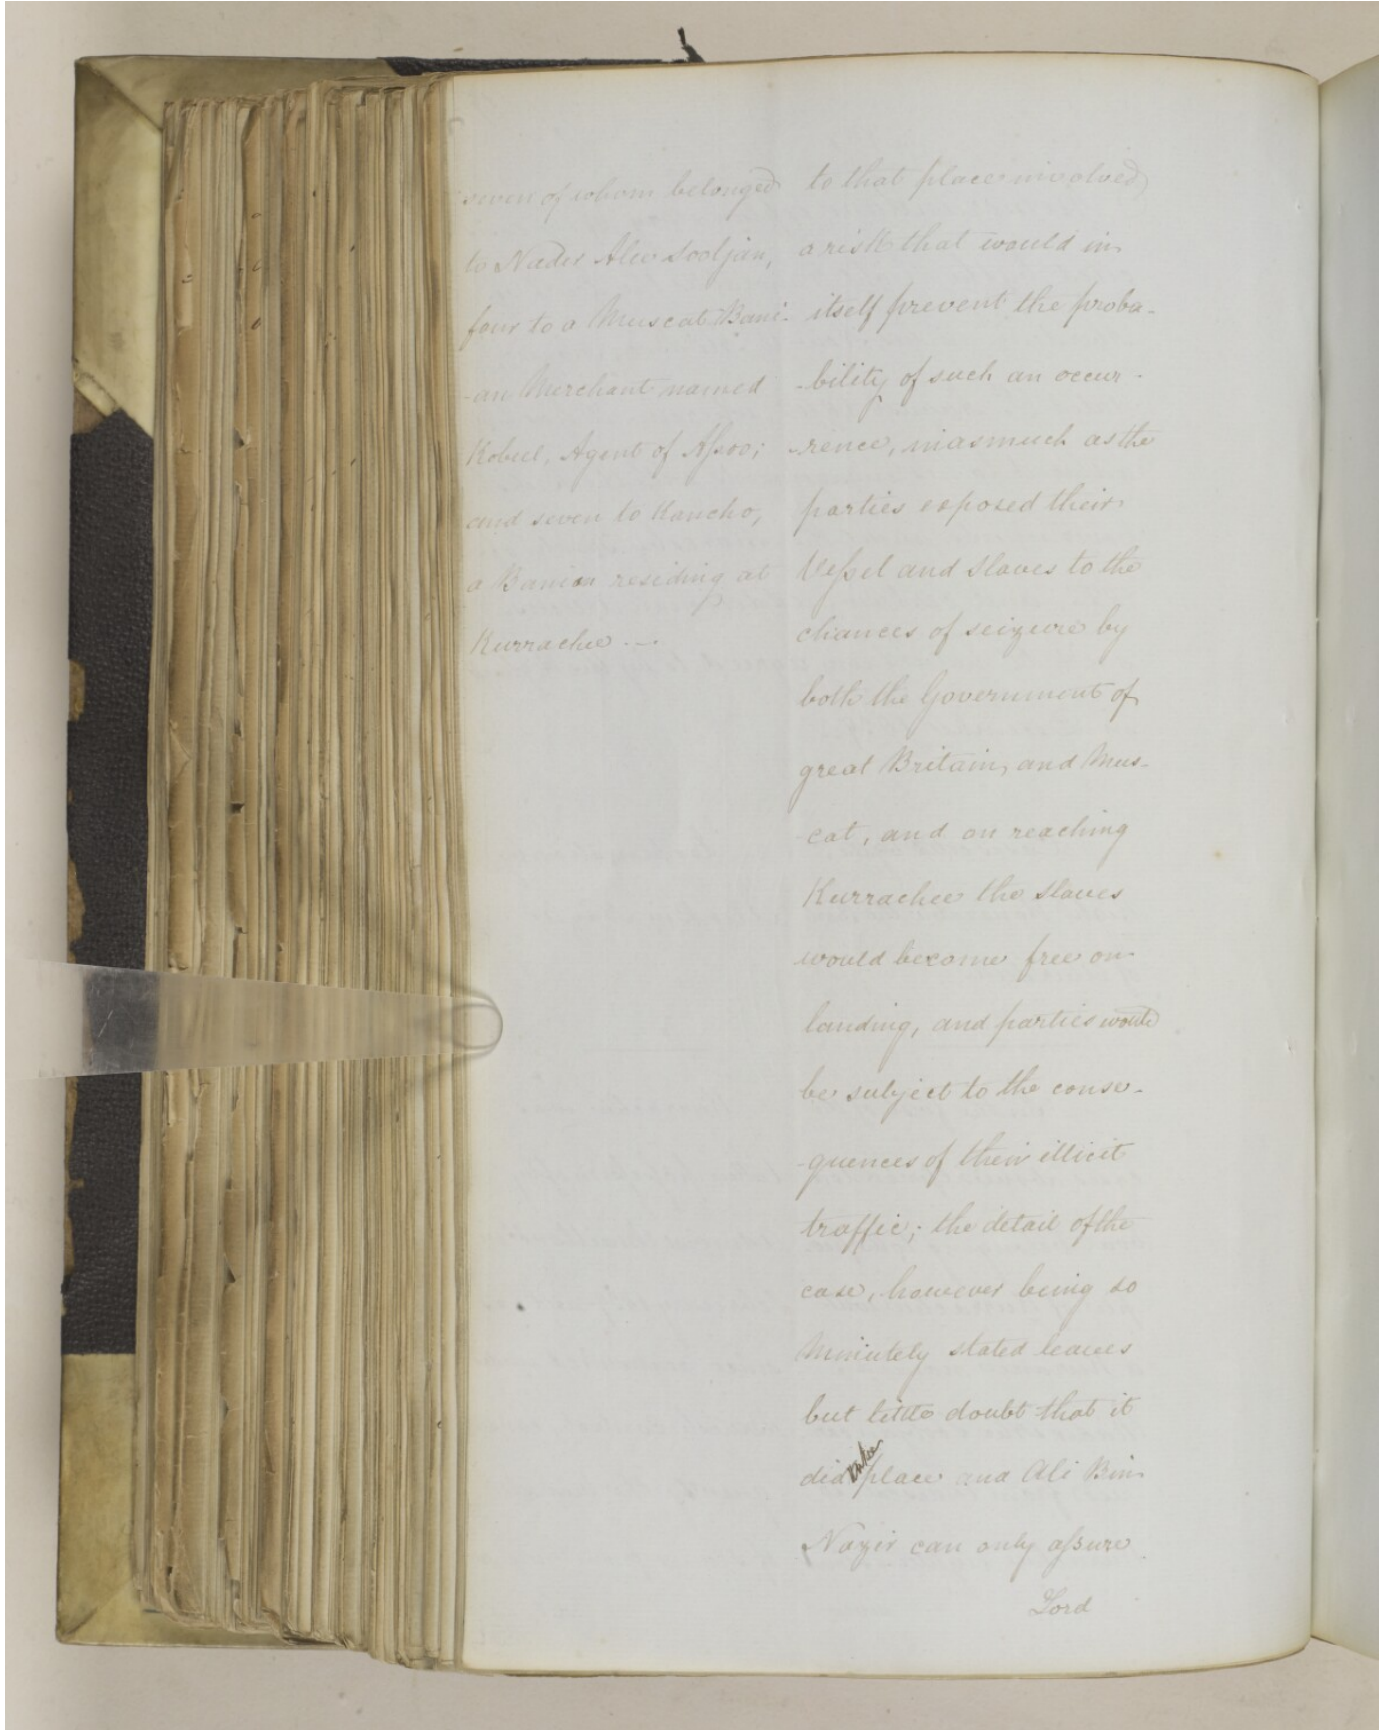 seven of whom belonged
to Nadir Alee Sooljan,
four to a Muscat Bani-
-an Merchant named
Kobul, Agent of Apoo;
and seven to Kancho,
a Banian residing at
Kurrachee
to that place involved
a risk that would in
itself prevent the proba-
-bility of such an occur-
-rence, inasmuch as the
parties exposed their
Vessel and Slaves to the
chances of seizure by
both the Government of
great Britain, and Mus-
-cat, and on reaching
Kurrachee the Slaves
would become free on
landing, and parties would
be subject to the conse-
-quences of their illicit
traffic; the detail of the
case, however being so
Minutely stated leaves
but little doubt that it
did take place and Ali Bin
Nazir can only assure
Lord